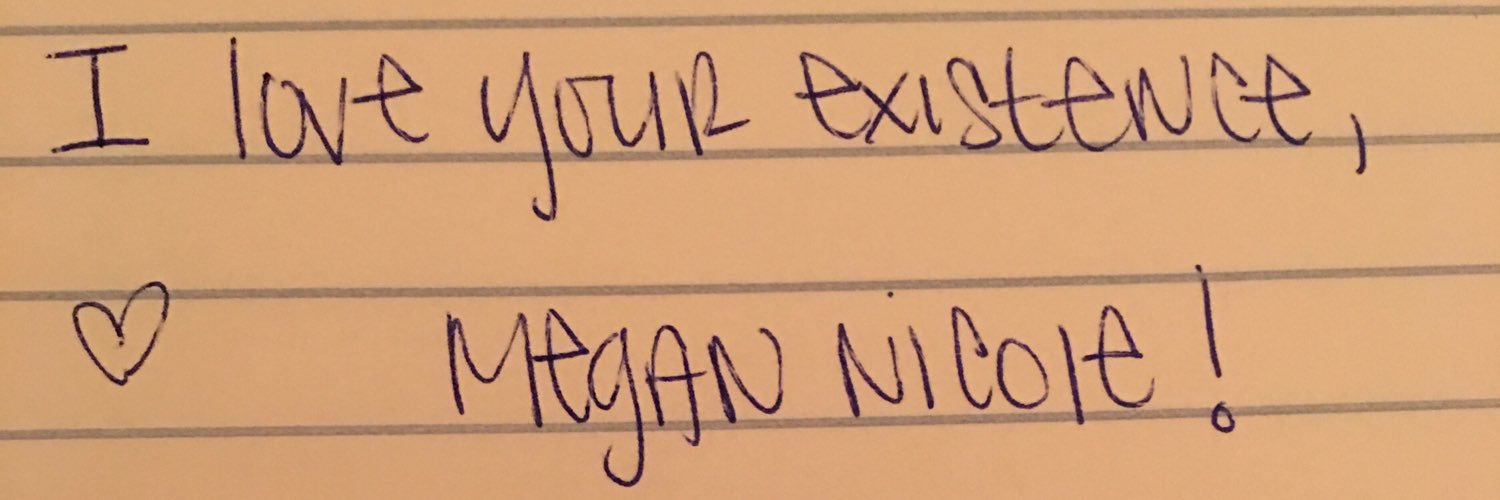 I love your existence,
♡ Megan Nicole!